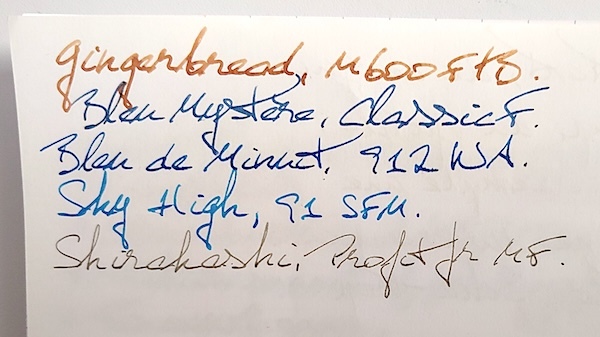 Gingerbread, M600 F+B.
Bleu Mystère, Classic F.
Bleu de Minuit, 912 WA.
Sky High, 91 SFM.
Shirakashi, Profit Jr MF.